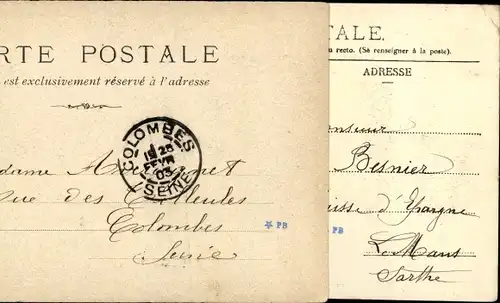 RTE POSTALE
est exclusivement réservé à l'adresse
COLOMBES
28
FEVR
03
(SEINE)
dame
rue des Tilleuls
Colombes
Seine
PB
TALE.
u recto. (Se renseigner à la poste).
ADRESSE
onsieur
Besnier
isse d'Epargne
PB
Le Mans
Sarthe